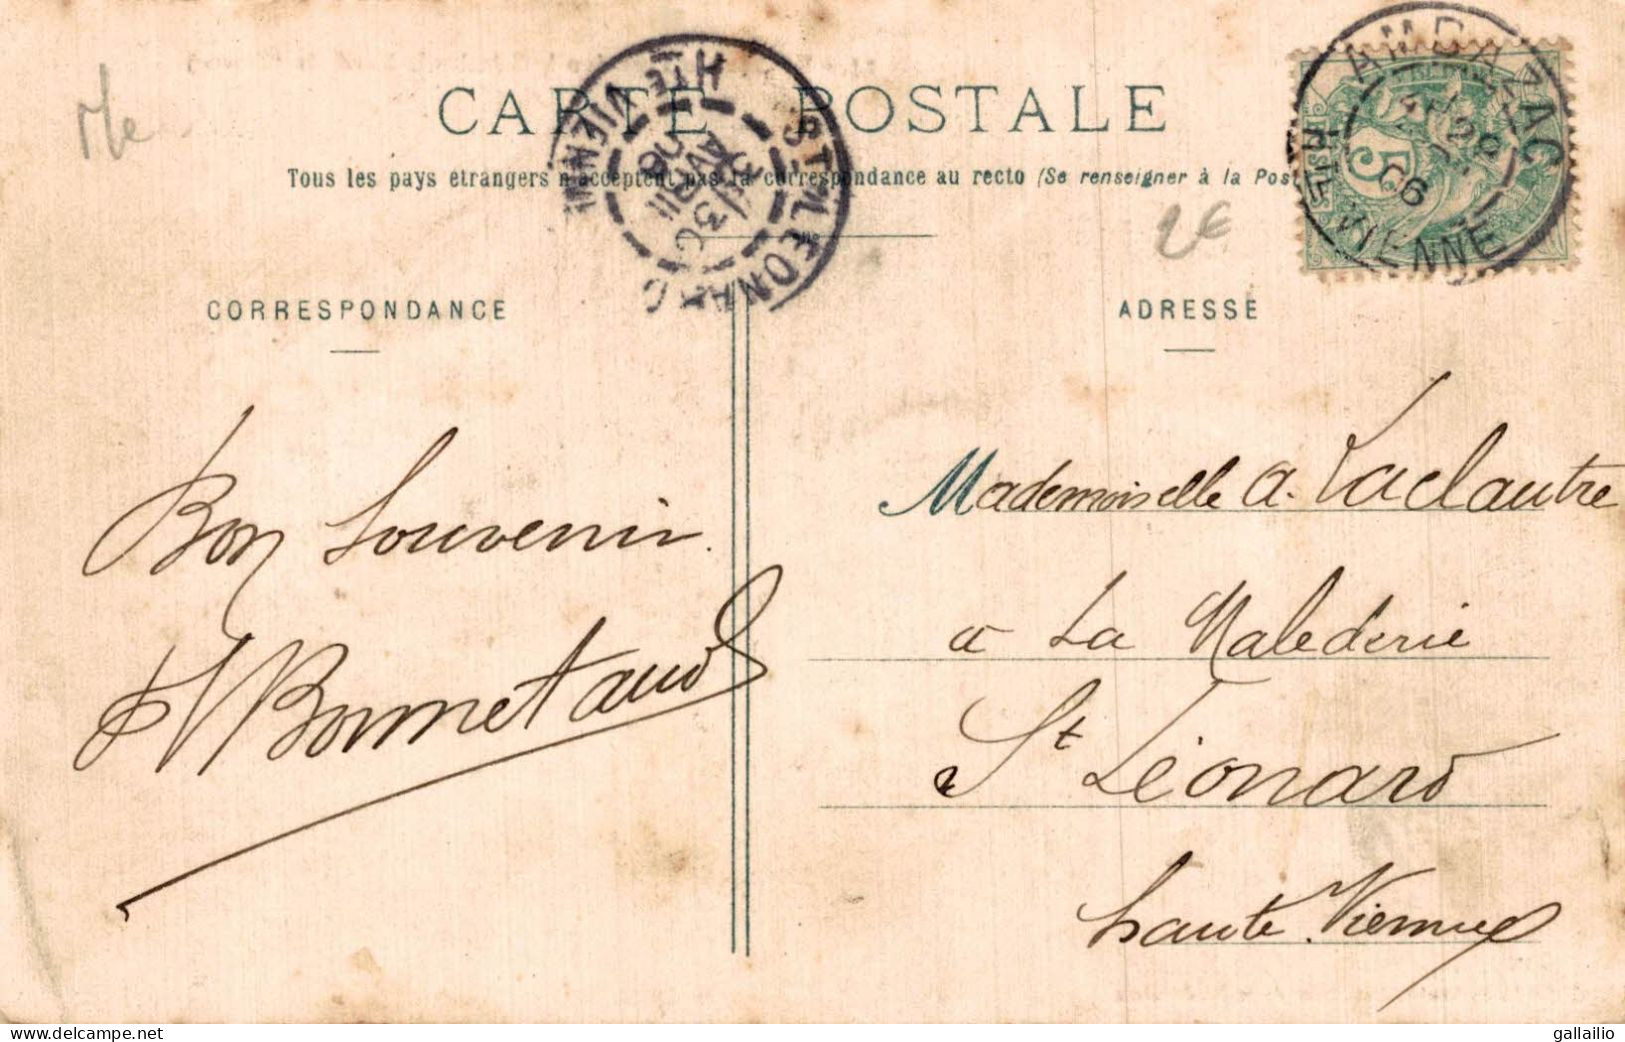 CARTE POSTALE
Tous les pays étrangers n'acceptent pas la correspondance au recto (Se renseigner à la Pos
ST LEONARD
HTE VIENNE
30
AVRIL
06
AMBAZAC
HTE VIENNE
06
5
2€
CORRESPONDANCE
ADRESSE
Bon Souvenir.
Bonnetaud
Mademoiselle A. Laclautre
a La Malederie
St Léonard
haute. Vienne
delcampe.net
gallailio